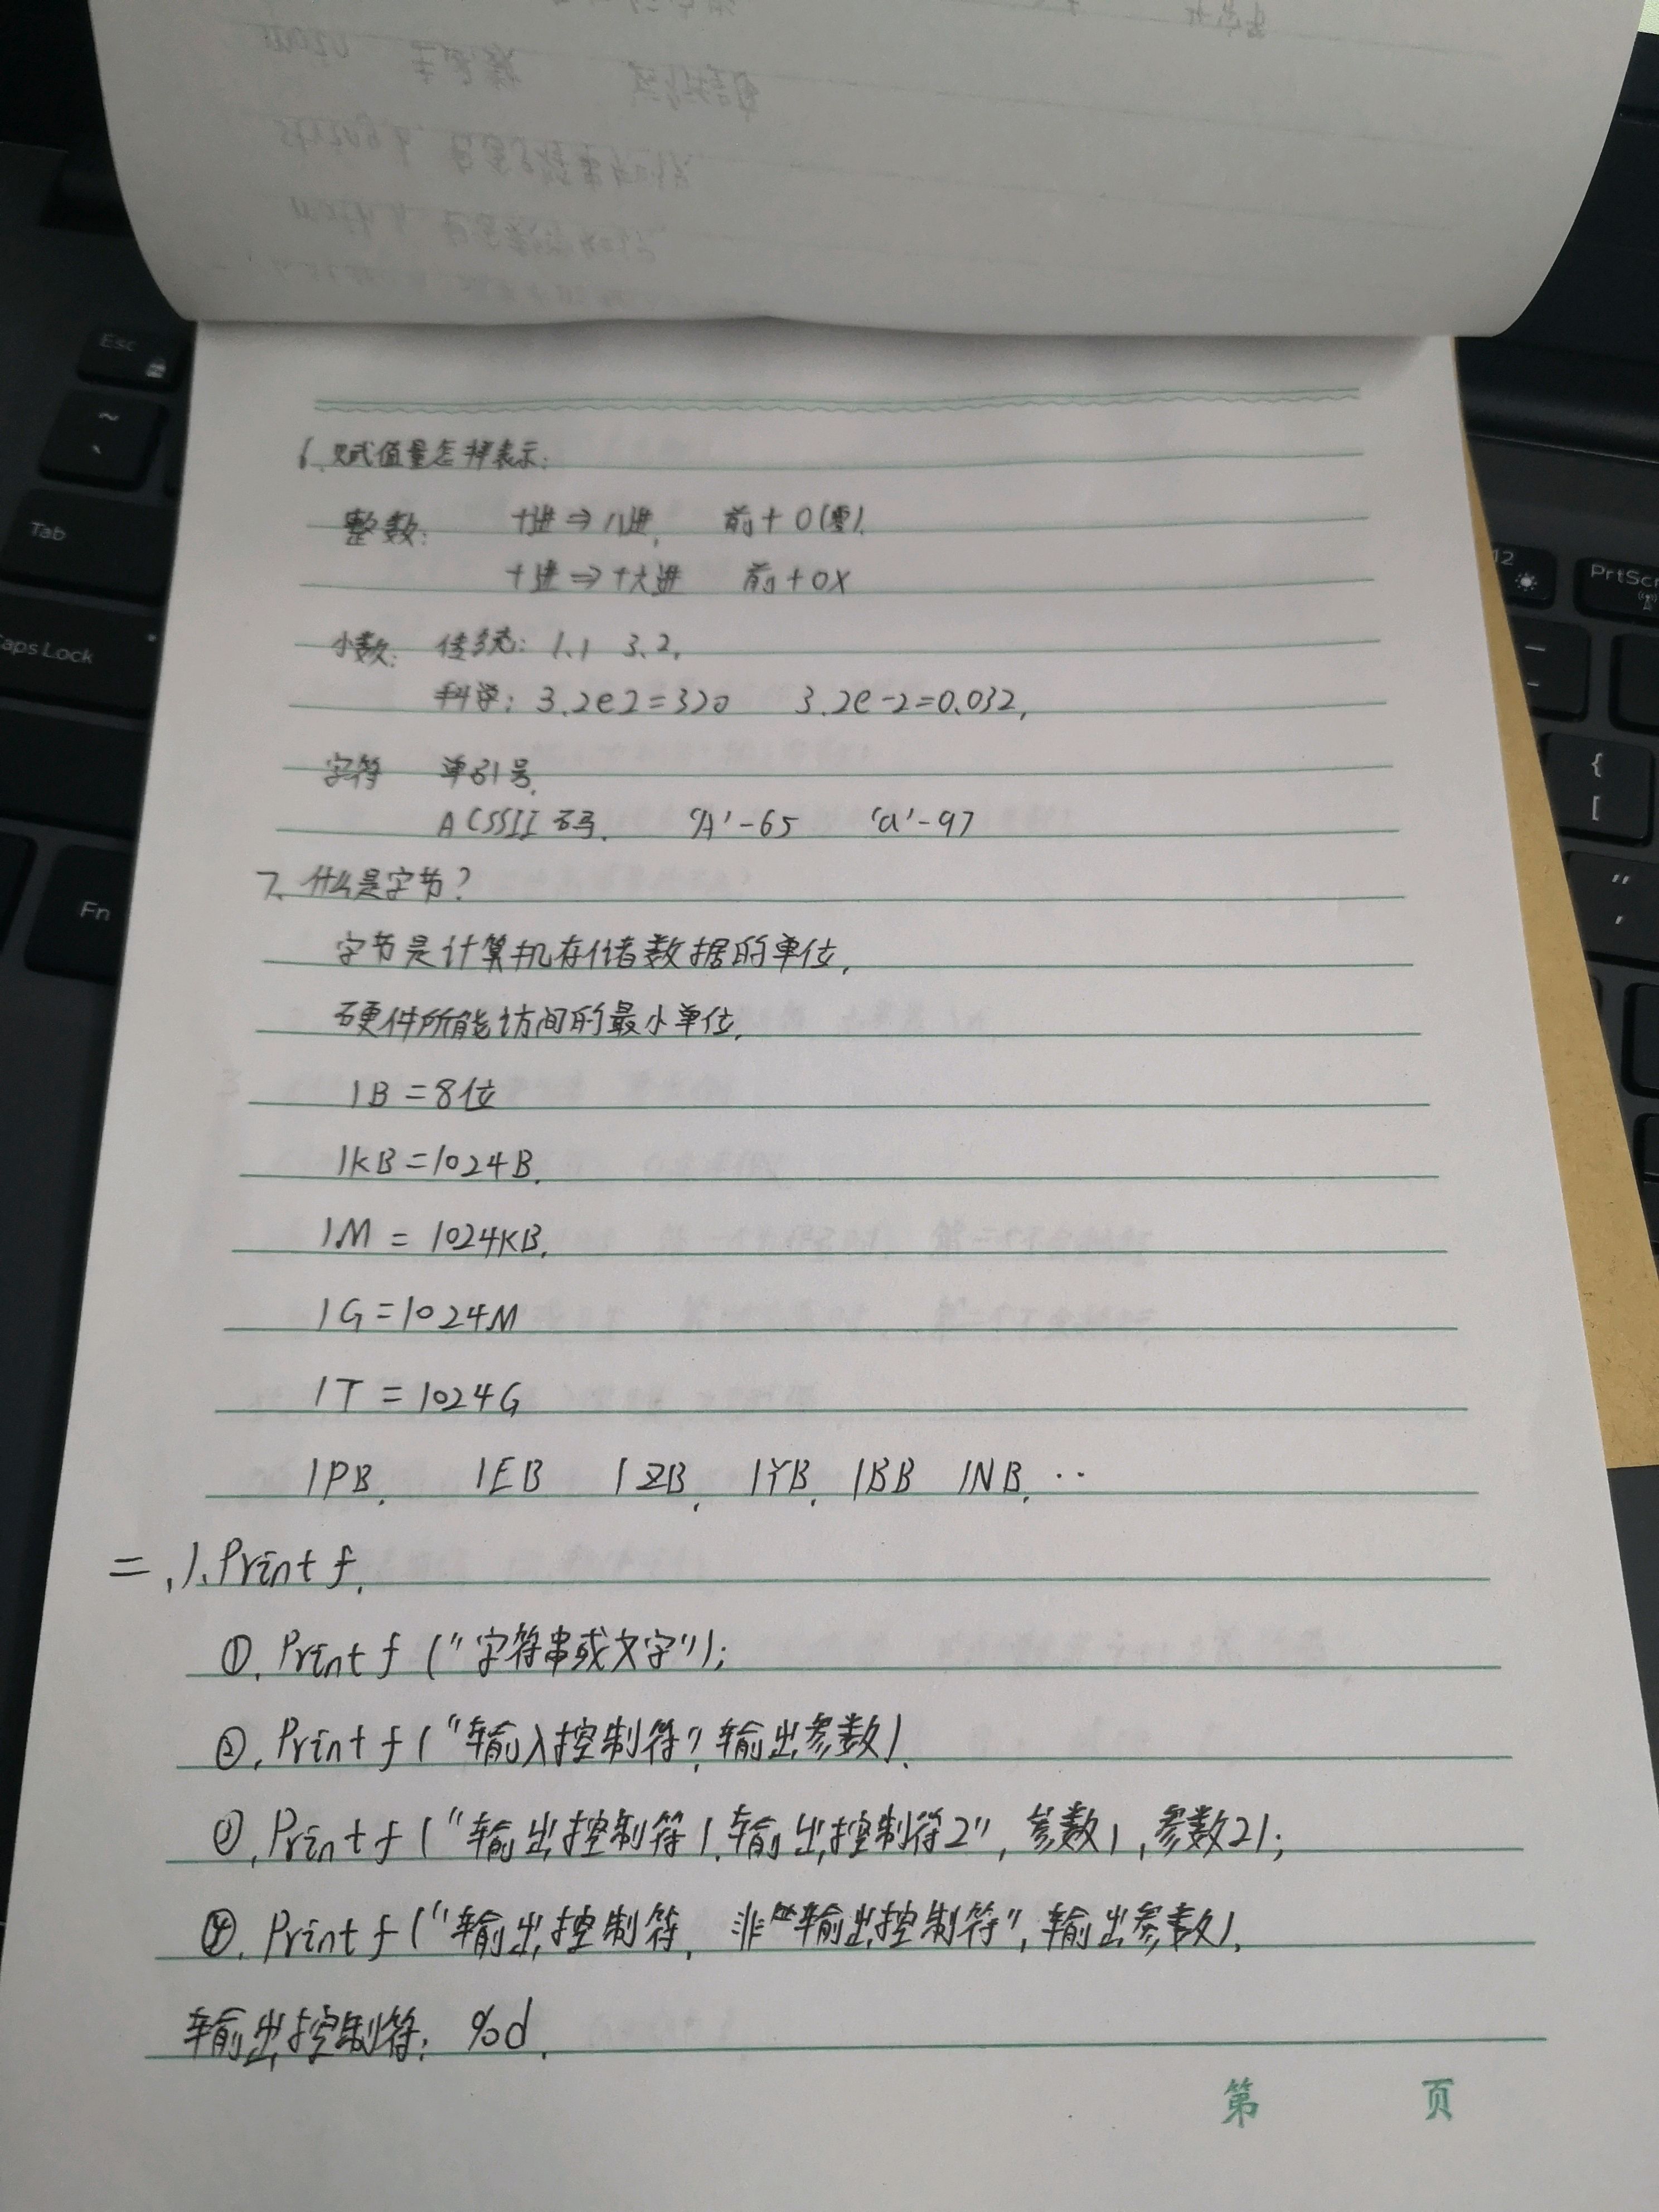 6、赋值量怎样表示:
整数: 十进⇒八进, 前+0(零).
十进⇒十六进 前+0X
小数: 传统: 1.1 3.2,
科学: 3.2e2=320 3.2e-2=0.032,
字符 单引号.
ACSSII码. 'A'-65 'a'-97
7、什么是字节?
字节是计算机存储数据的单位,
硬件所能访问的最小单位,
1B=8位
1KB=1024B.
1M=1024KB.
1G=1024M
1T=1024G
1PB. 1EB 1ZB, 1YB, 1BB 1NB. ··
二.1、Printf.
①. Printf("字符串或文字");
②. Printf("输入控制符", 输出参数).
③. Printf("输出控制符1.输出控制符2", 参数1, 参数2);
④. Printf("输出控制符, 非输出控制符", 输出参数).
输出控制符: %d.
第 页
Esc
~
`
Tab
Caps Lock
Fn
12
PrtScr
{
[
"
'